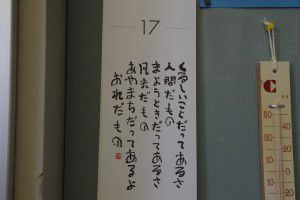 17
くるしいことだってあるさ
人間だもの
まようときだってあるさ
凡夫だもの
あやまちだってあるよ
おれだもの
C
50